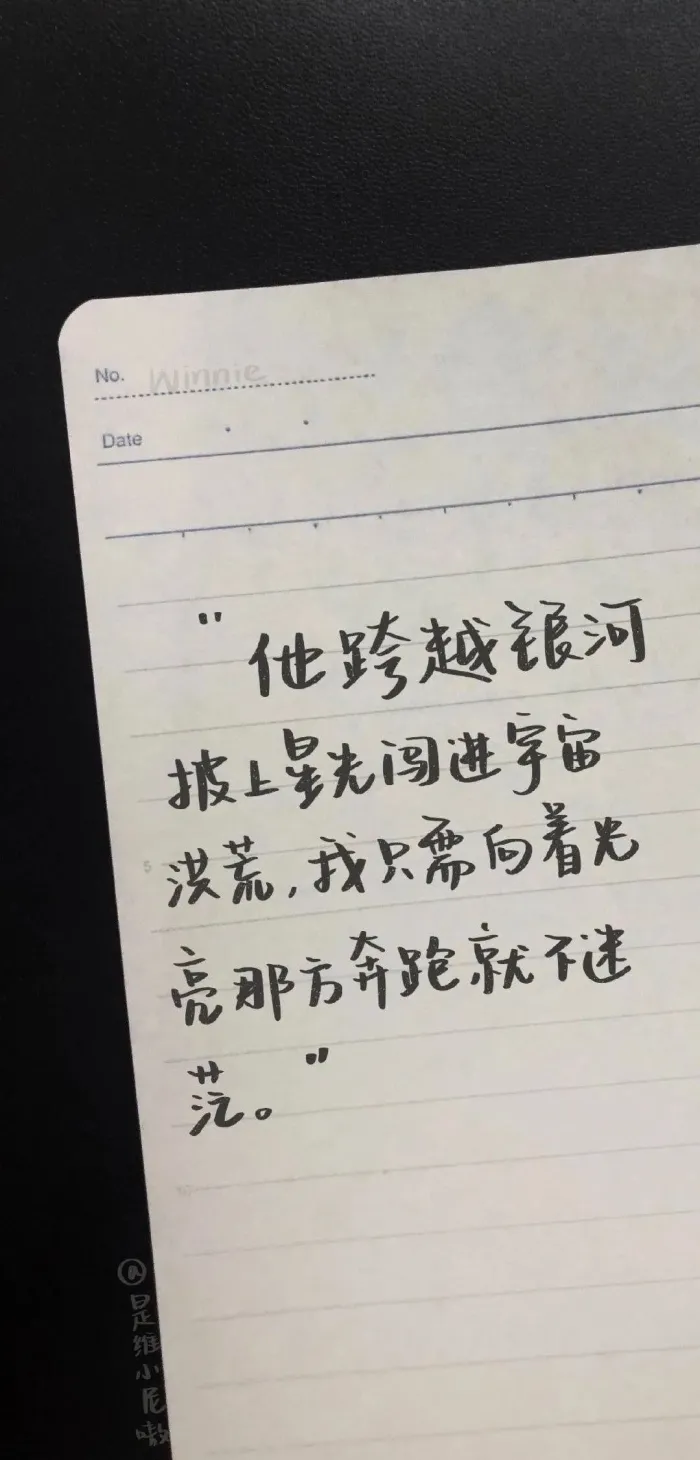 No. Winnie
Date
“他跨越银河
披上星光闯进宇宙
5
洪荒,我只需向着光
亮那方奔跑就不迷
茫。”
10
@是维小尼嗷